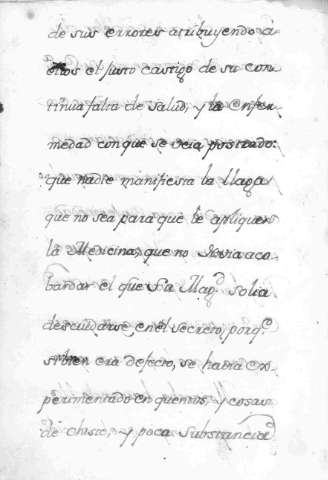 de sus errores atribuyendo á
otros el justo castigo de su con
tinua falta de salud, y la enfer
medad con que se veia postrado:
que nadie manifiesta la llaga
que no sea para que le apliquen
la Medicina, que no devia aco
bardar el que Sa. Magd. solia
descuidarse en el secreto, porqe.
si bien era defecto, se havia ex
perimentado en quentos, y cosas
de chiste, y poca substancia